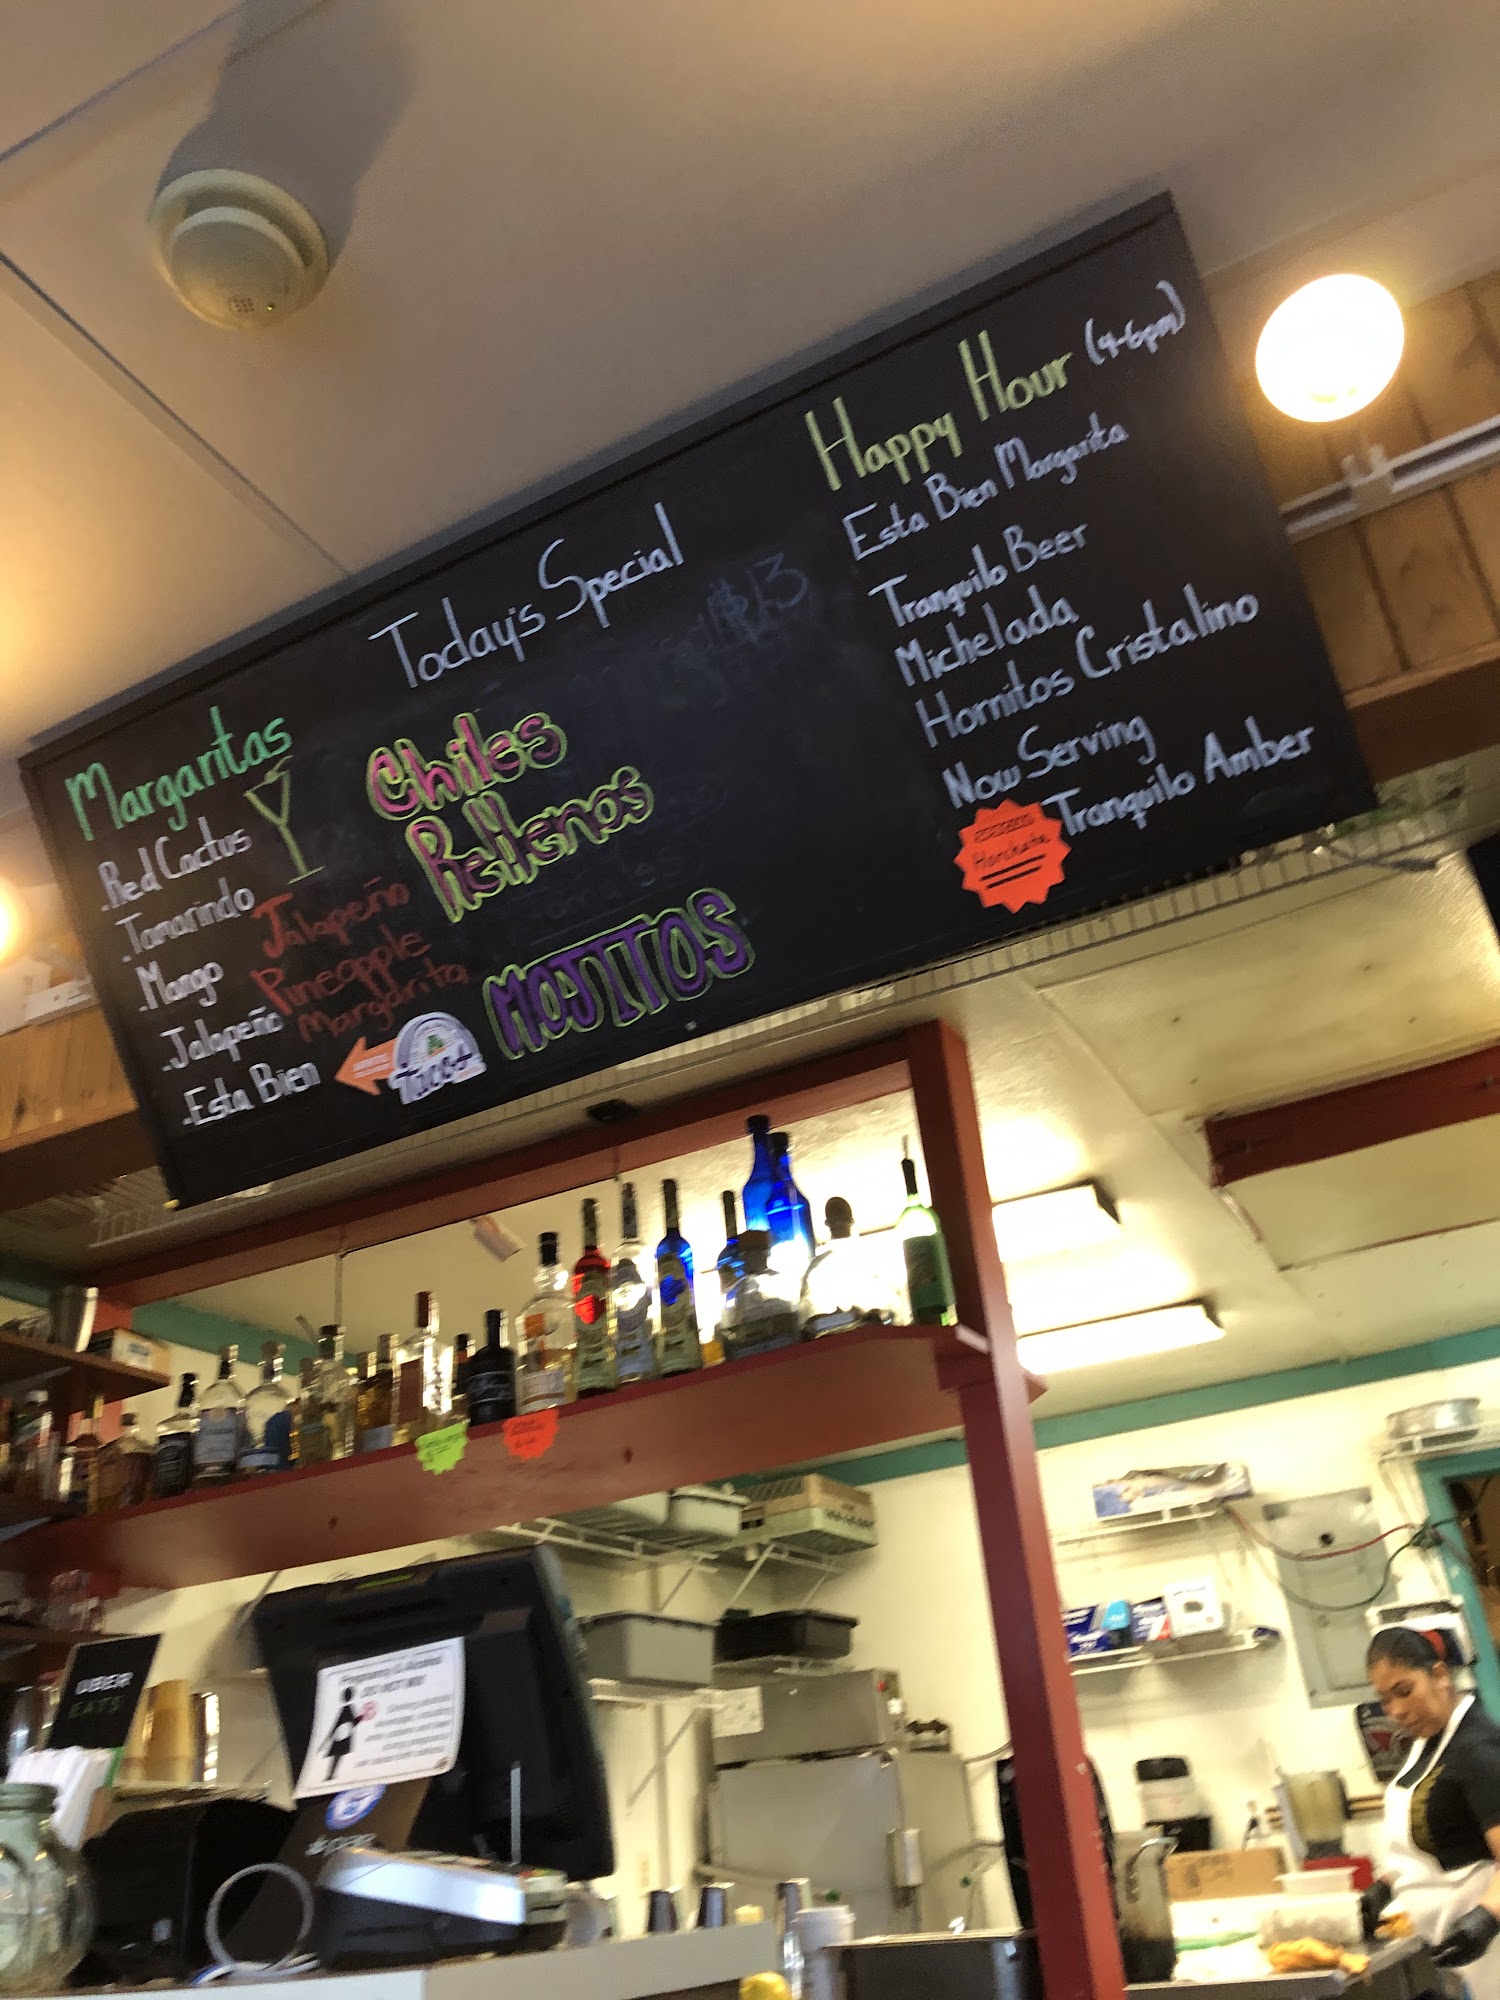 Margaritas
.Red Cactus
.Tamarindo
.Mango
.Jalapeño
.Esta Bien
Jalapeño
Pineapple
Margarita
Tacos
Today's Special
Chiles
Rellenos
MOJITOS
$13
Happy Hour (4-6pm)
Esta Bien Margarita
Tranquilo Beer
Michelada
Hornitos Cristalino
Now Serving
Tranquilo Amber
Horchata
UBER
EATS
DO NOT MIX